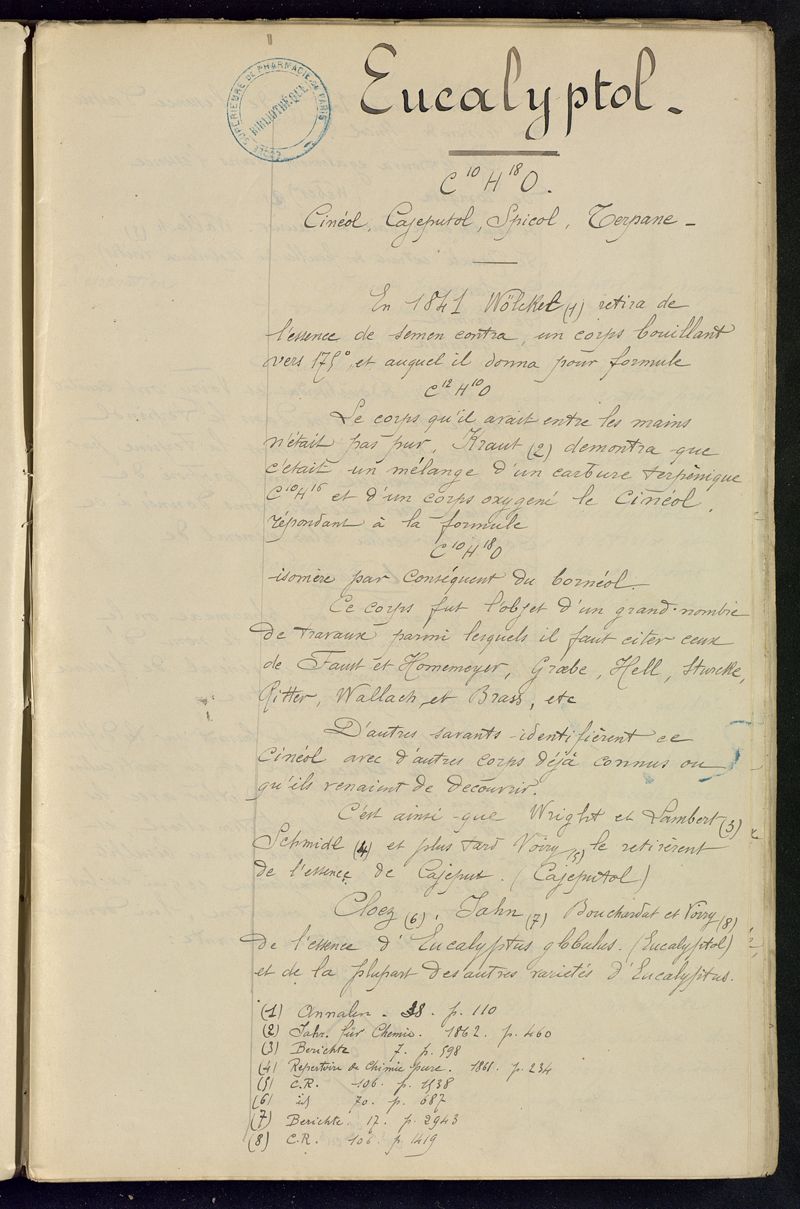 ÉCOLE SUPÉRIEURE DE PHARMACIE DE PARIS
BIBLIOTHÈQUE
Eucalyptol -
C¹⁰H¹⁸O.
Cinéol, Cajeputol, Spicol, Terpane -
En 1841 Wölckel (1) retira de
l'essence de semen contra, un corps bouillant
vers 175°, et auquel il donna pour formule
C¹²H¹⁰O
Le corps qu'il avait entre les mains
n'était pas pur. Kraut (2) demontra que
c'était un mélange d'un carbure terpènique
C¹⁰H¹⁶ et d'un corps oxygené le Cinéol,
répondant à la formule
C¹⁰H¹⁸O
isomère par conséquent du bornéol.
Ce corps fut l'objet d'un grand nombre
de travaux parmi lesquels il faut citer ceux
de Faust et Homemeyer, Græbe, Hell, Sturcke,
Ritter, Wallach et Brass, etc
D'autres savants identifièrent ce
Cinéol avec d'autres corps déjà connus ou
qu'ils venaient de decouvrir.
C'est ainsi que Wright et Lambert (3)
Schmidl (4) et plus tard Voiry (5) le retirèrent
de l'essence de Cajeput. (Cajeputol)
Cloez (6), Jahn (7) Bouchardat et Voiry (8)
de l'essence d'Eucalyptus globulus. (Eucalyptol)
et de la plupart des autres varietés d'Eucalyptus.
(1) Annalen - 38. p. 110
(2) Jahr. für Chemie. 1862. p. 460
(3) Berichte 7. p. 598
(4) Repertoire de Chimie pure. 1861. p. 234
(5) C.R. 106. p. 1538
(6) id 70. p. 687
(7) Berichte. 17. p. 2943
(8) C.R. 106. p. 1419